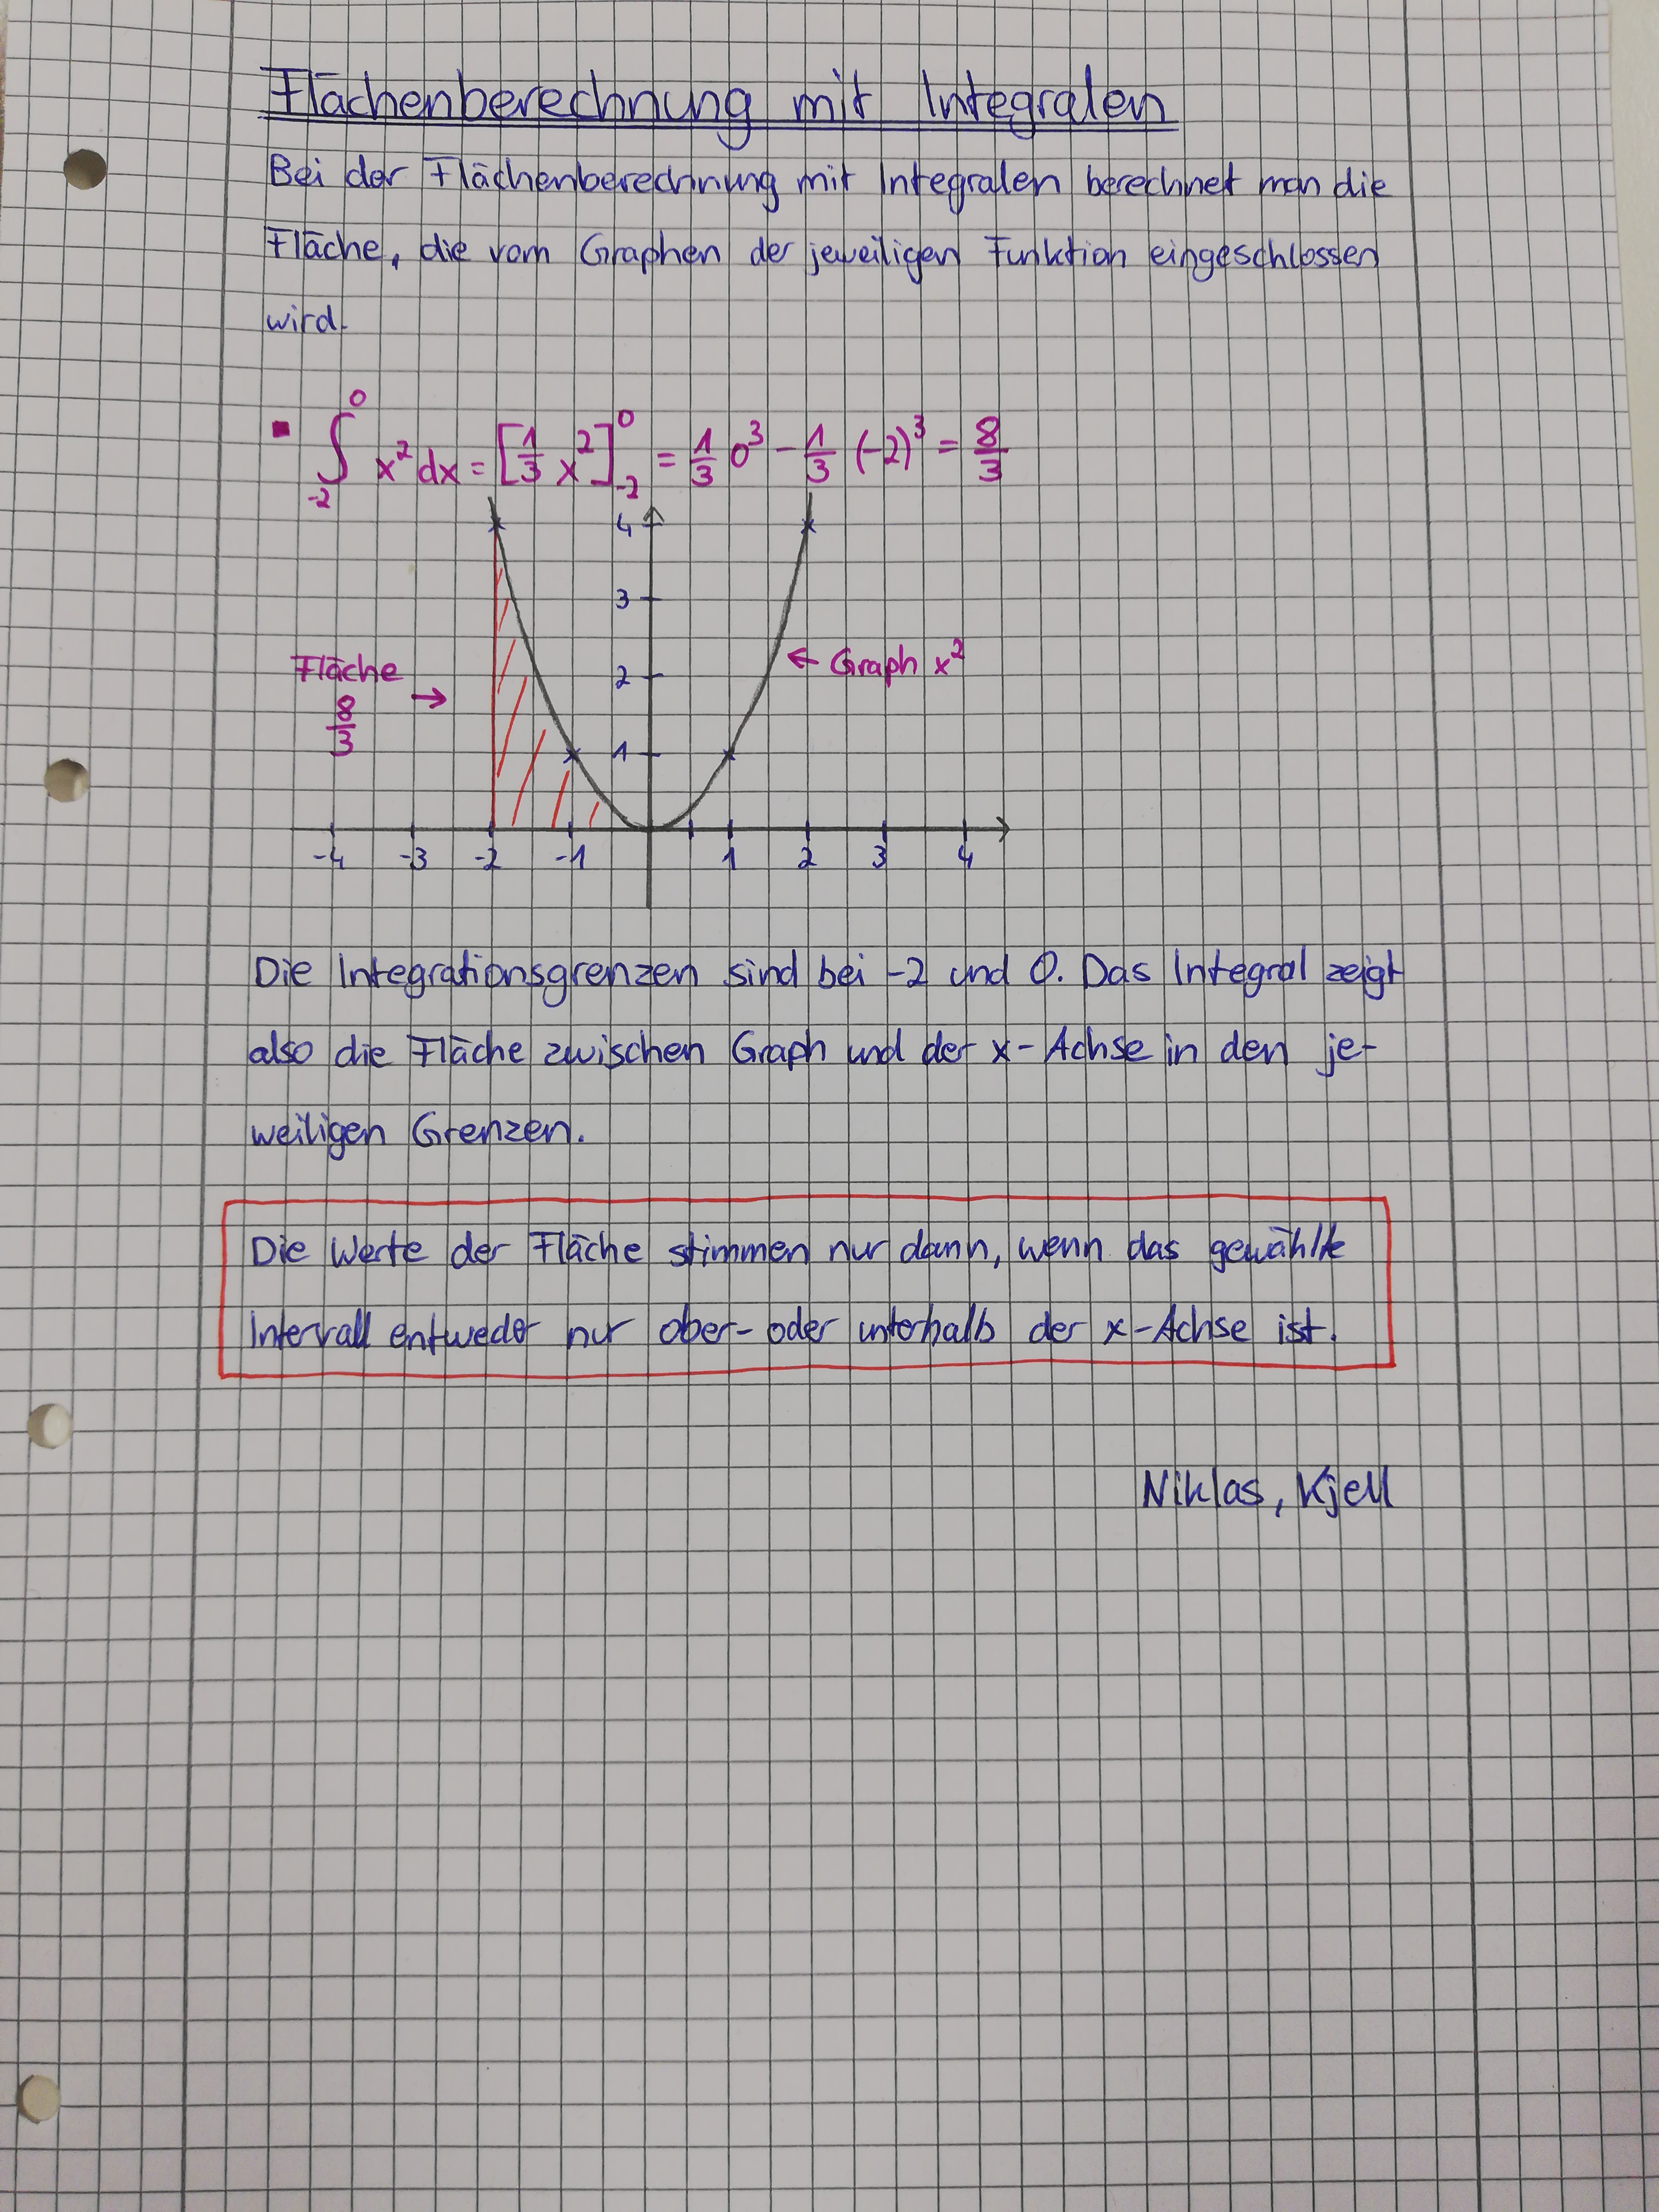 Flächenberechnung mit Integralen
Bei der Flächenberechnung mit Integralen berechnet man die
Fläche, die vom Graphen der jeweiligen Funktion eingeschlossen
wird.
∫_{-2}^{0} x² dx = [1/3 x²]_{-2}^{0} = 1/3 0³ - 1/3 (-2)³ = 8/3
4
3
← Graph x²
Fläche →
8/3
2
1
-4 -3 -2 -1 1 2 3 4
Die Integrationsgrenzen sind bei -2 und 0. Das Integral zeigt
also die Fläche zwischen Graph und der x-Achse in den je-
weiligen Grenzen.
Die Werte der Fläche stimmen nur dann, wenn das gewählte
Intervall entweder nur ober- oder unterhalb der x-Achse ist.
Niklas, Kjell